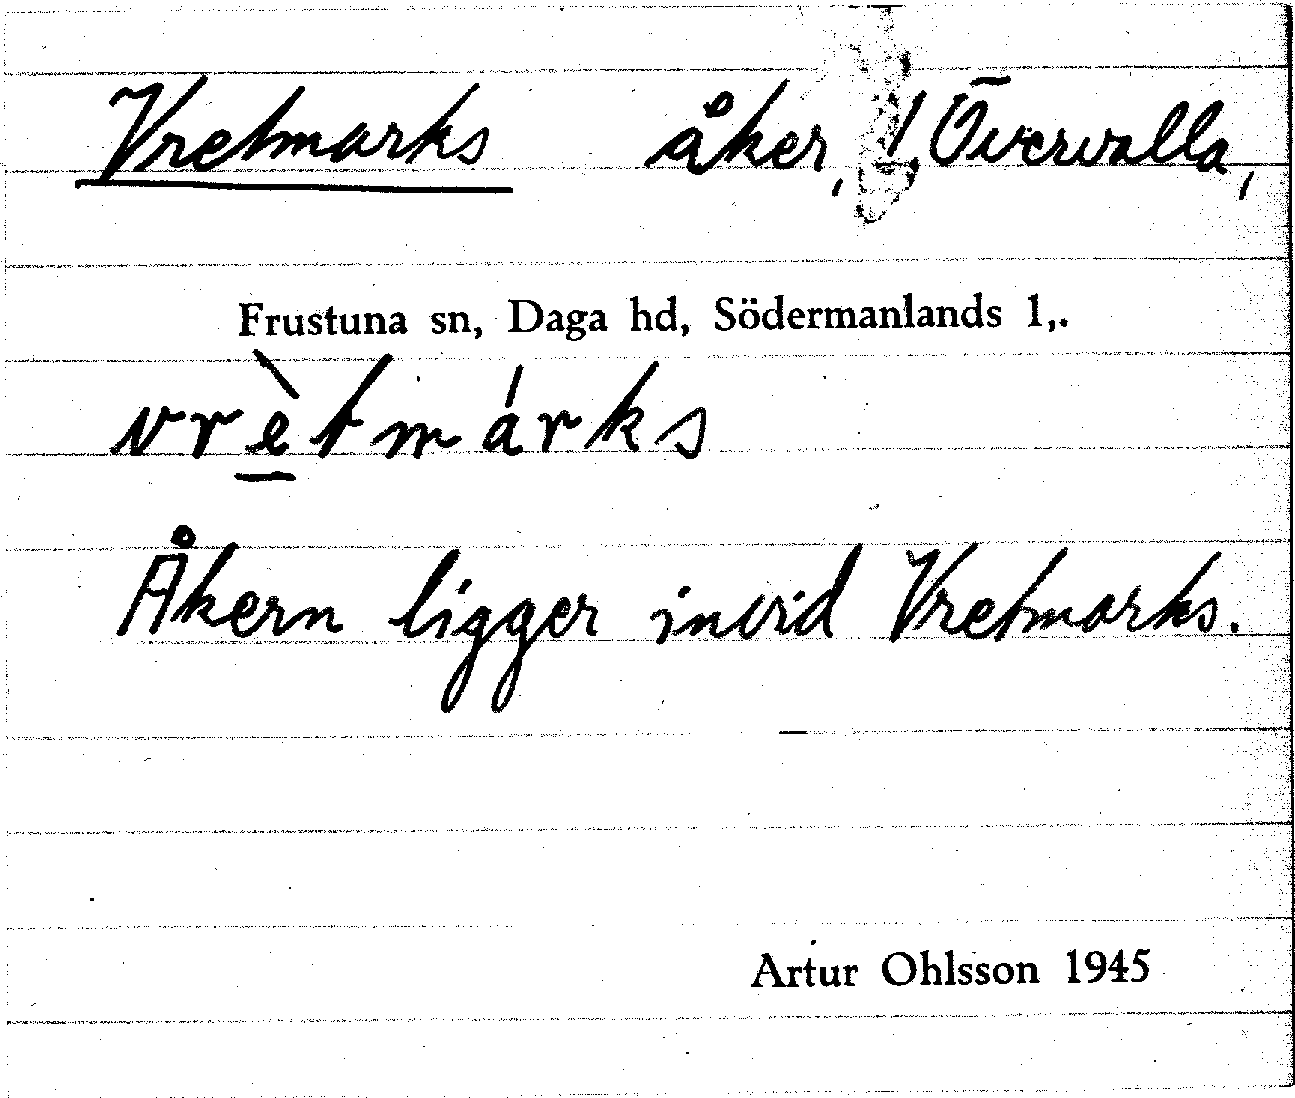 Vretmarks åker, ! Övervalla,
Frustuna sn, Daga hd, Södermanlands l,.
vrètmárks
Åkern ligger invid Vretmarks.
Artur Ohlsson 1945